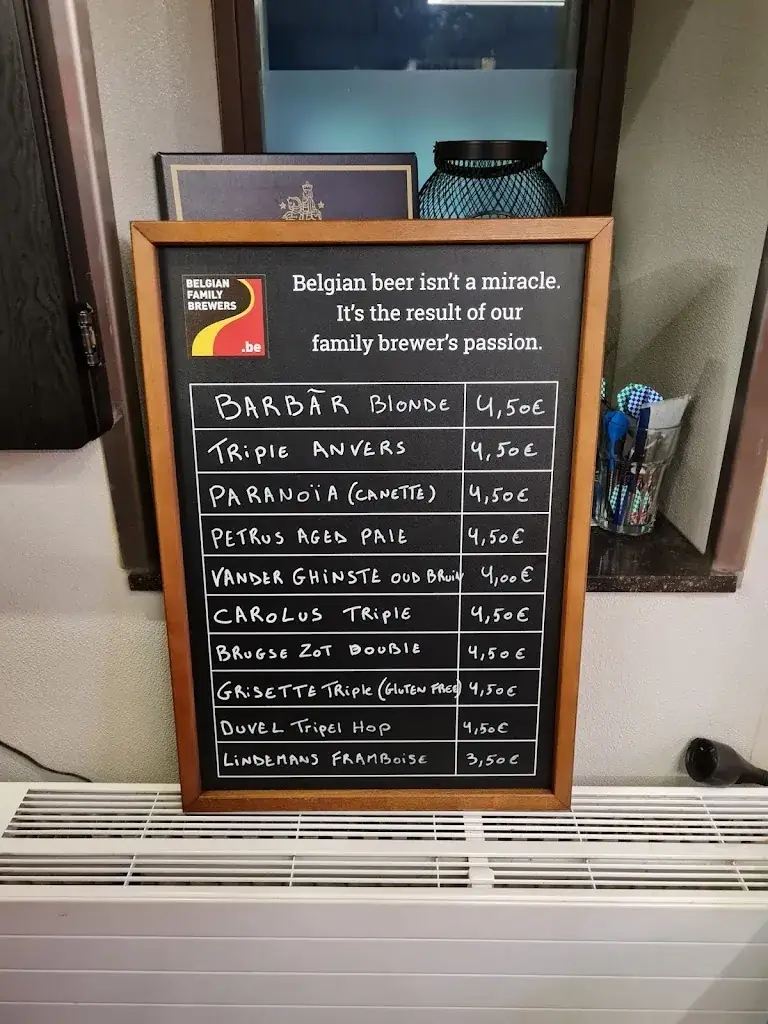 BELGIAN
FAMILY
BREWERS
.be
Belgian beer isn't a miracle.
It's the result of our
family brewer's passion.
BARBÃR BLONDE 4,50€
TRIPLE ANVERS 4,50€
PARANOÏA (CANETTE) 4,50€
PETRUS AGED PALE 4,50€
VANDER GHINSTE OUD BRUIN 4,00€
CAROLUS TRIPLE 4,50€
BRUGSE ZOT DOUBLE 4,50€
GRISETTE TRIPLE (GLUTEN FREE) 4,50€
DUVEL TRIPEL HOP 4,50€
LINDEMANS FRAMBOISE 3,50€